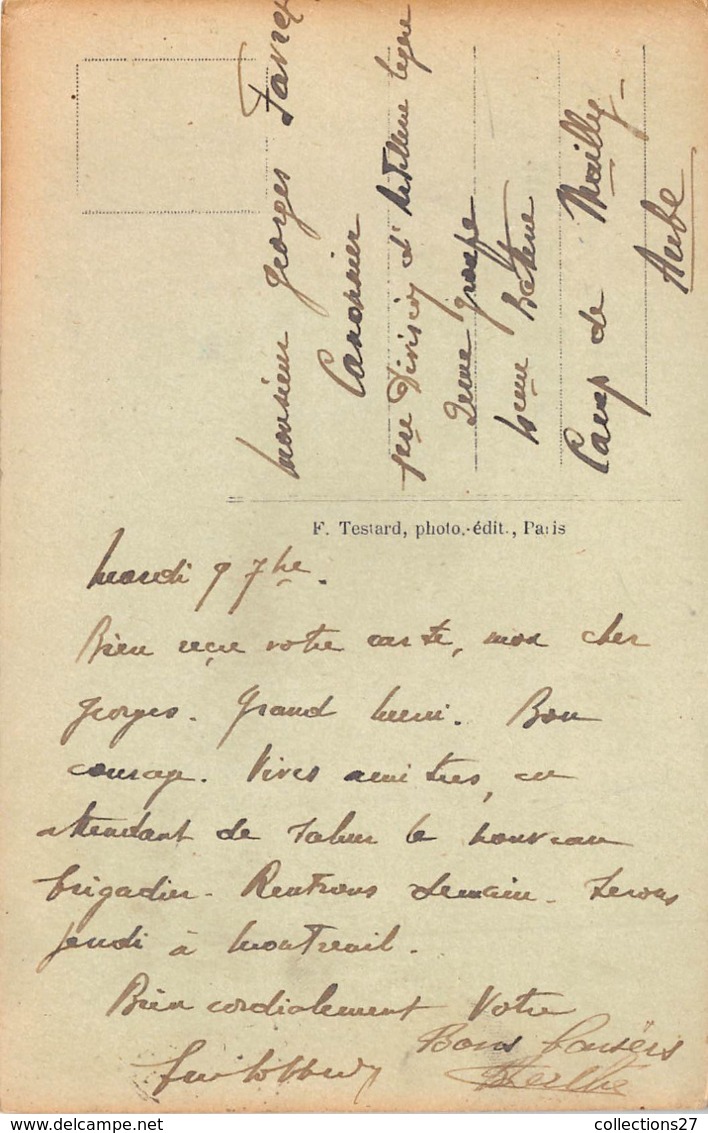 Monsieur Georges Favre
Canonnier
1ère Division d'Artillerie légère
2eme groupe
4eme Batterie
Camp de Mailly-
Aube
F. Testard, photo.-édit., Paris
Mardi 9 7bre.
Bien reçu votre carte, mon cher
Georges. Grand merci. Bon
courage. Vives amitiés, en
attendant de saluer le nouveau
brigadier. Rentrons demain. Serons
jeudi à Montreuil.
Bien cordialement Votre
Bons baisers
Berthe
collections27